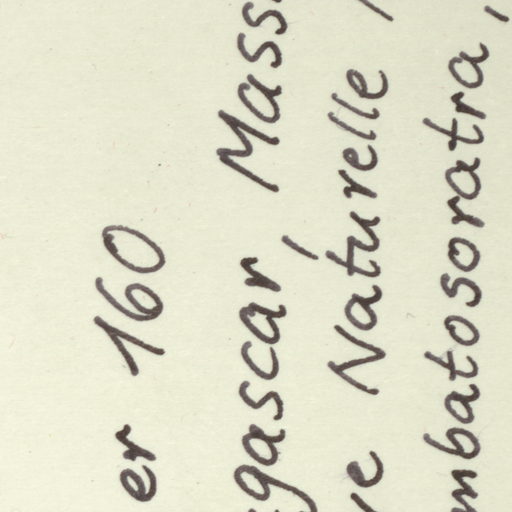 er 160
gascar, Mass
ve Naturelle
mbatosoratra,